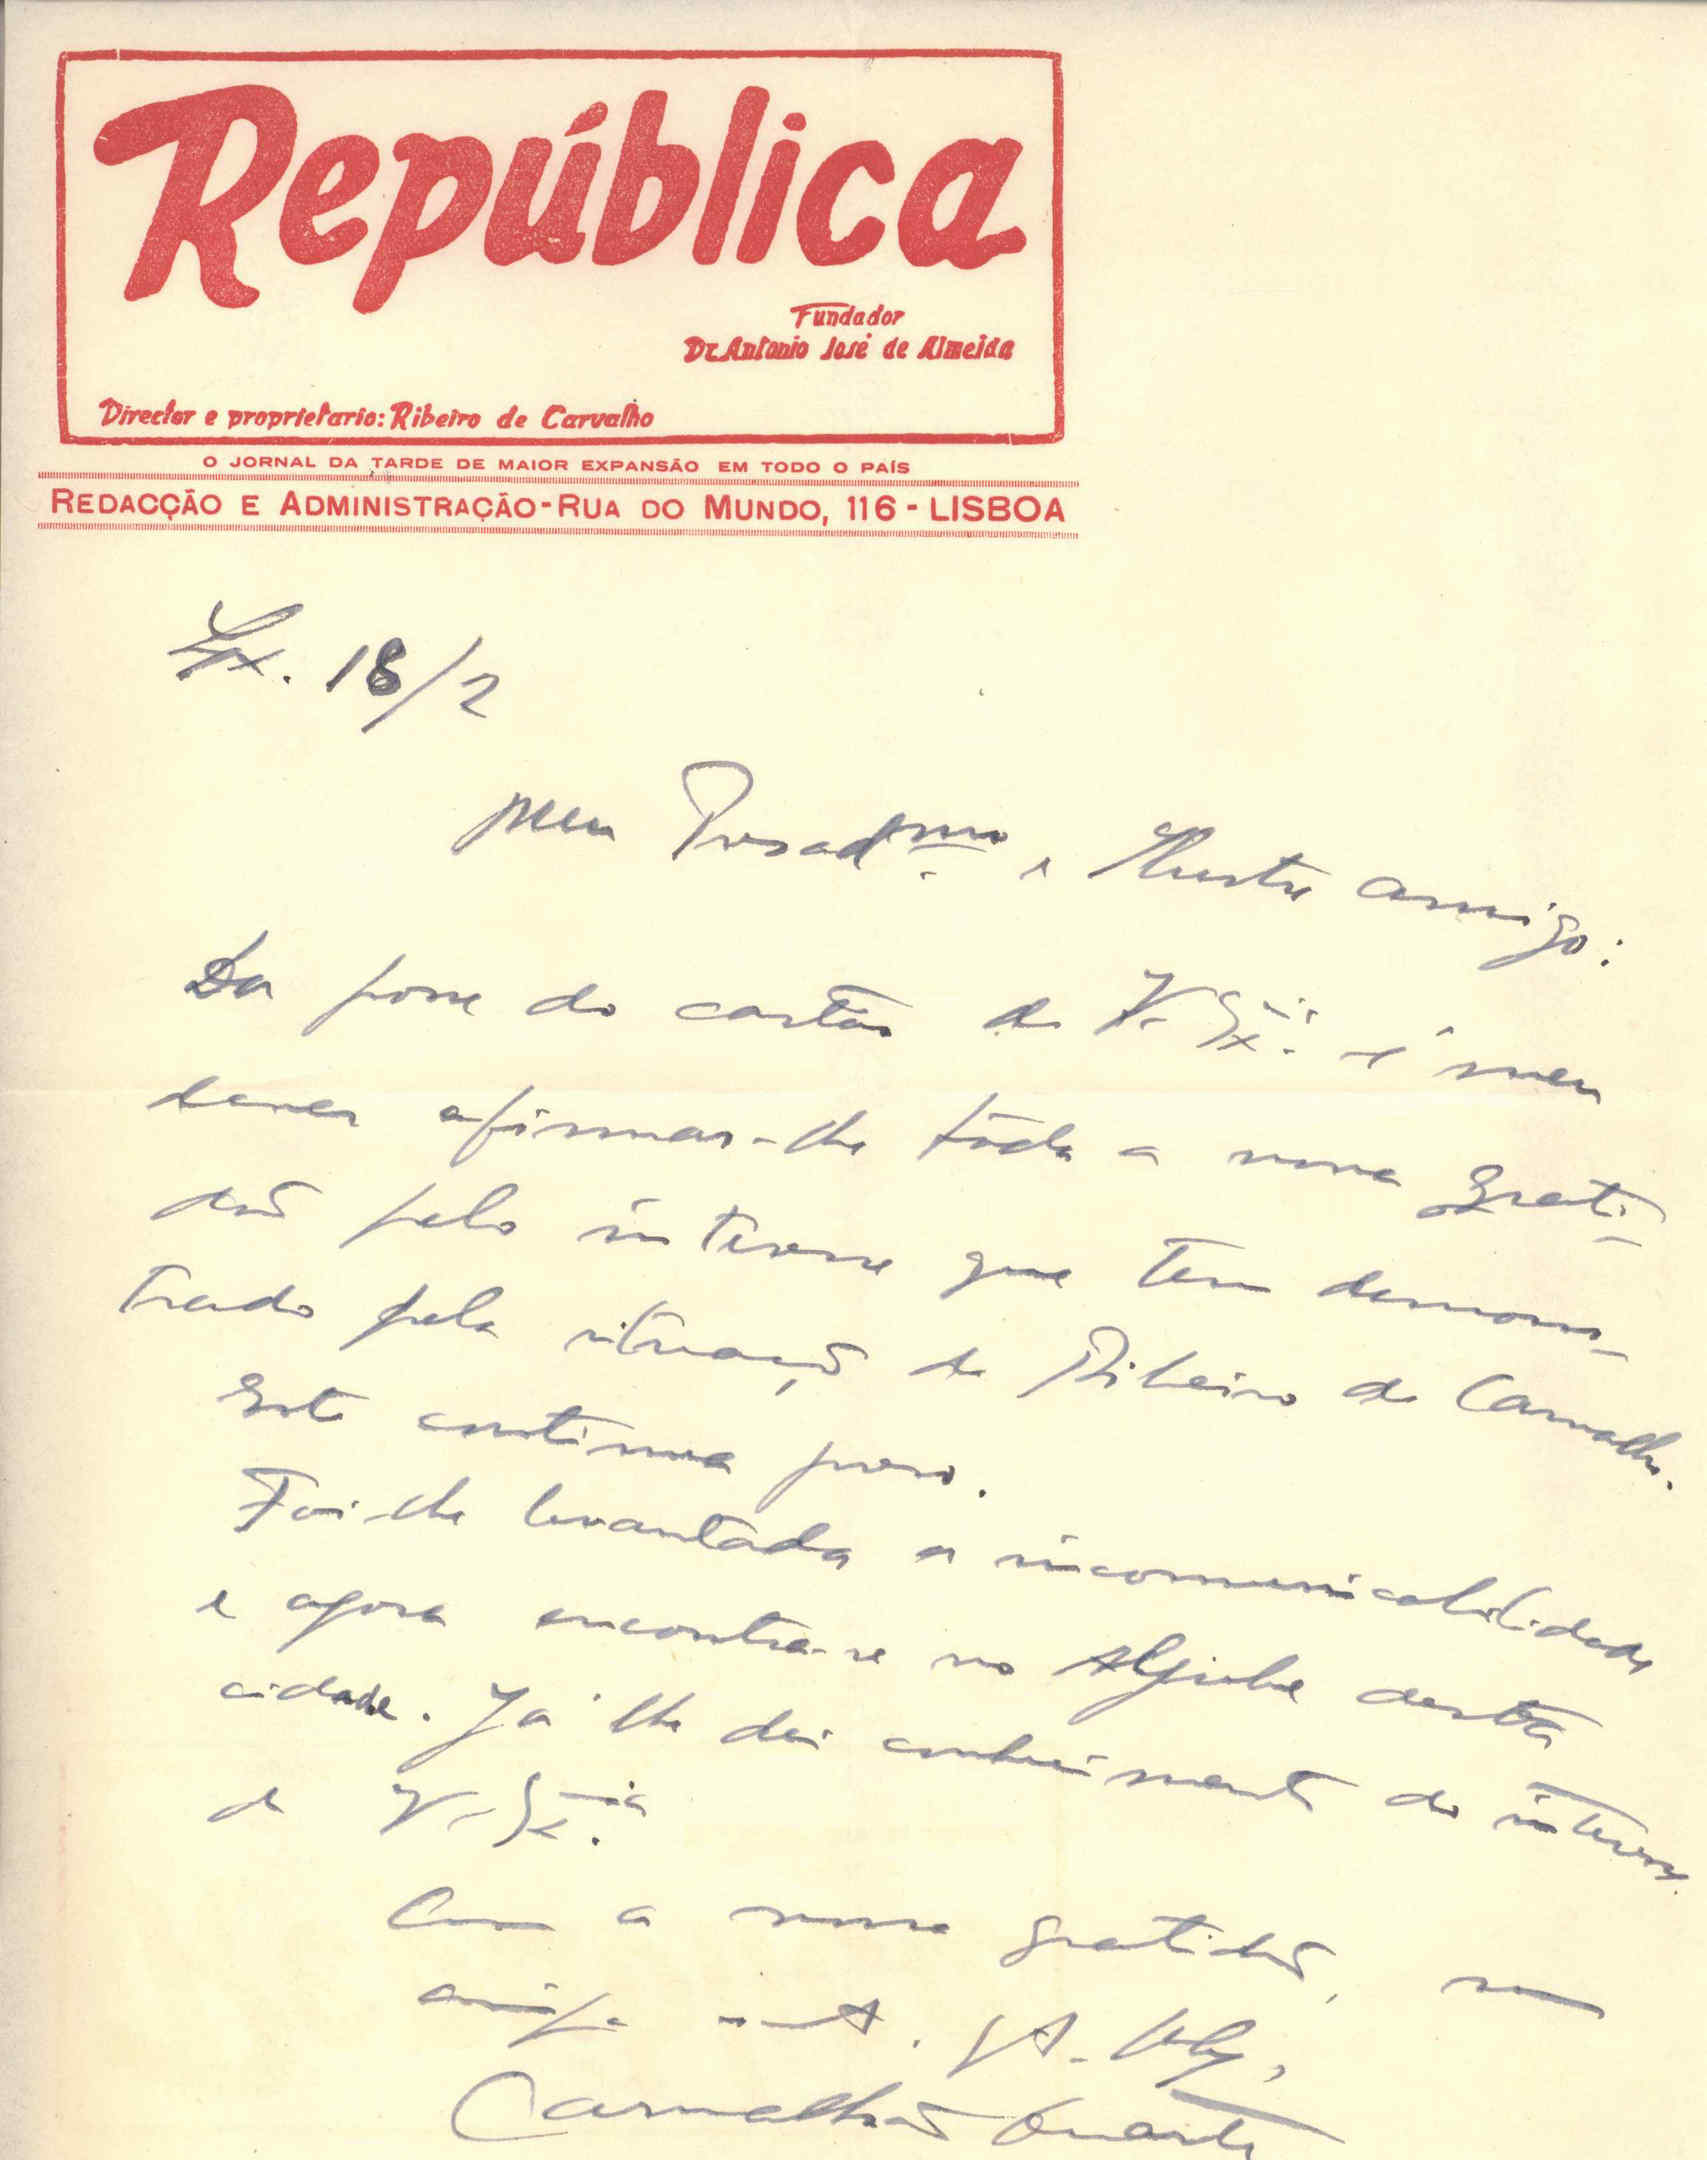 República
Fundador
Dr. Antonio José de Almeida
Director e proprietario: Ribeiro de Carvalho
O JORNAL DA TARDE DE MAIOR EXPANSÃO EM TODO O PAÍS
REDACÇÃO E ADMINISTRAÇÃO-RUA DO MUNDO, 116 - LISBOA
Lx. 18/2
Meu Presadmo e Ilustre amigo:
Da posse do cartão de V. Ex.ia é meu
dever afirmar-lhe tôda a nossa grati-
dão pelo interesse que tem demons-
trado pela situação de Ribeiro de Carvalho.
Este continua preso.
Foi-lhe levantada a incomunicabilidade
e agora encontra-se no Aljube desta
cidade. Já lhe dei conhecimento do interesse
de V. Ex.ia
Com a nossa gratidão,
amigo Obg.
Carvalhão Duarte